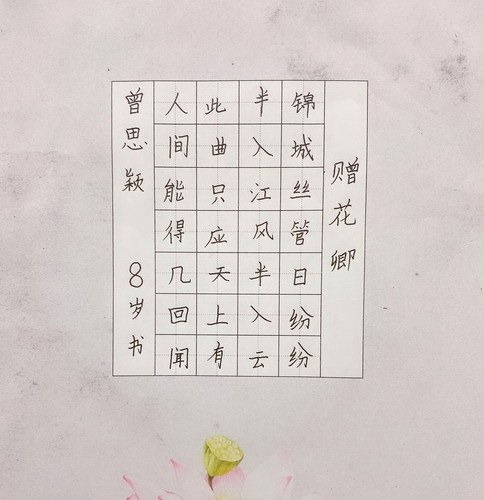 赠花卿
锦城丝管日纷纷
半入江风半入云
此曲只应天上有
人间能得几回闻
曾思颖 8岁书